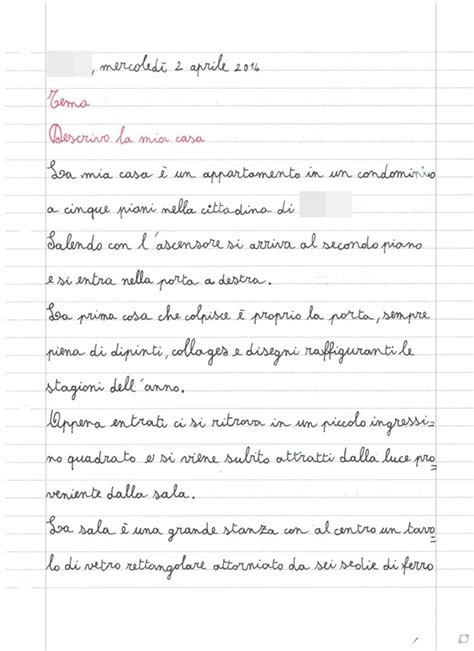 , mercoledì 2 aprile 2014
Tema
Descrivo la mia casa
La mia casa è un appartamento in un condominio
a cinque piani nella cittadina di
Salendo con l'ascensore si arriva al secondo piano
e si entra nella porta a destra.
La prima cosa che colpisce è proprio la porta, sempre
piena di dipinti, collages e disegni raffiguranti le
stagioni dell'anno.
Appena entrati ci si ritrova in un piccolo ingressi-
no quadrato e si viene subito attratti dalla luce pro
veniente dalla sala.
La sala è una grande stanza con al centro un tavo
lo di vetro rettangolare attorniato da sei sedie di ferro